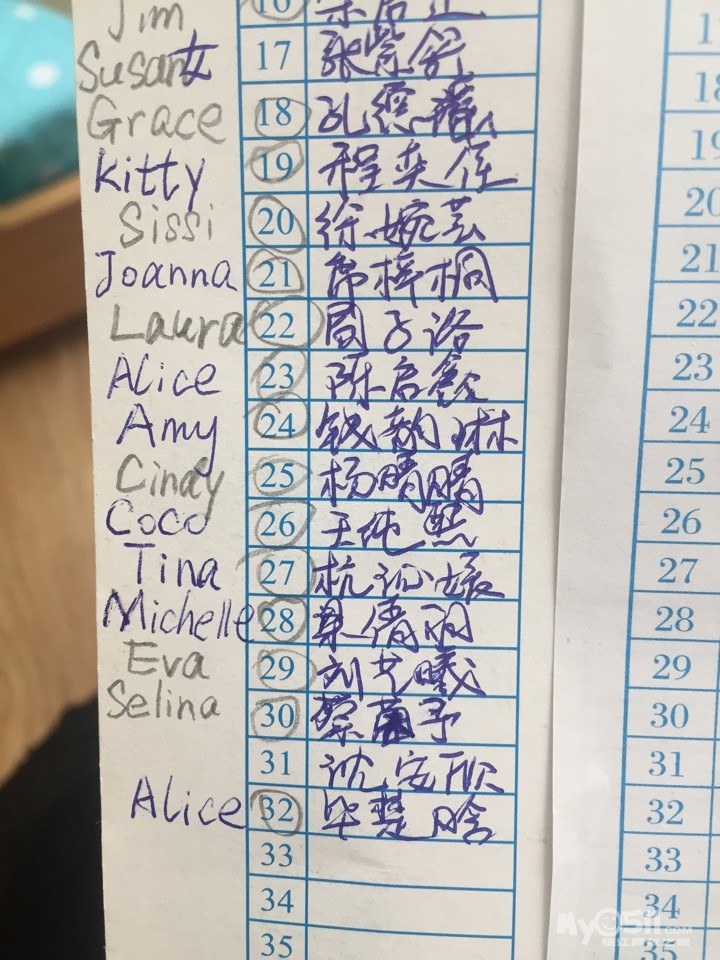 Jim 16
Susan女 17 张紫舒
Grace 18 孔
Kitty 19 程奕
Sissi 20 徐婉芸
Joanna 21 席梓桐
Laura 22 周子洛
Alice 23 陈启鑫
Amy 24 钱韵琳
Cindy 25 杨晴晴
Coco 26 王纯熙
Tina 27 杭
Michelle 28 倩羽
Eva 29 刘艺曦
Selina 30 蔡 予
31 沈安欣
Alice 32 毕楚晗
33
34
35
18
19
20
21
22
23
24
25
26
27
28
29
30
31
32
33
34
35
My0511.COM